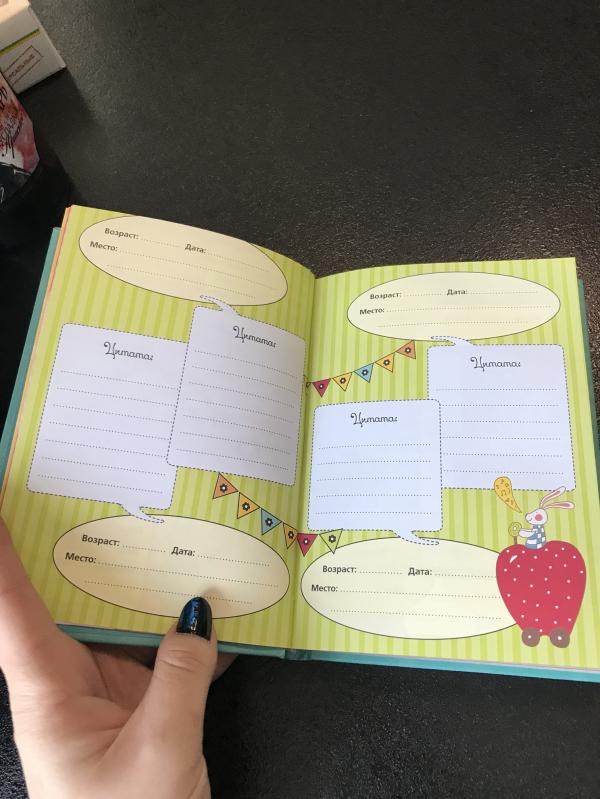 Возраст: Дата:
Место:
Цитата:
Цитата:
Возраст: Дата:
Место:
Возраст: Дата:
Место:
Цитата:
Цитата:
Возраст: Дата:
Место: